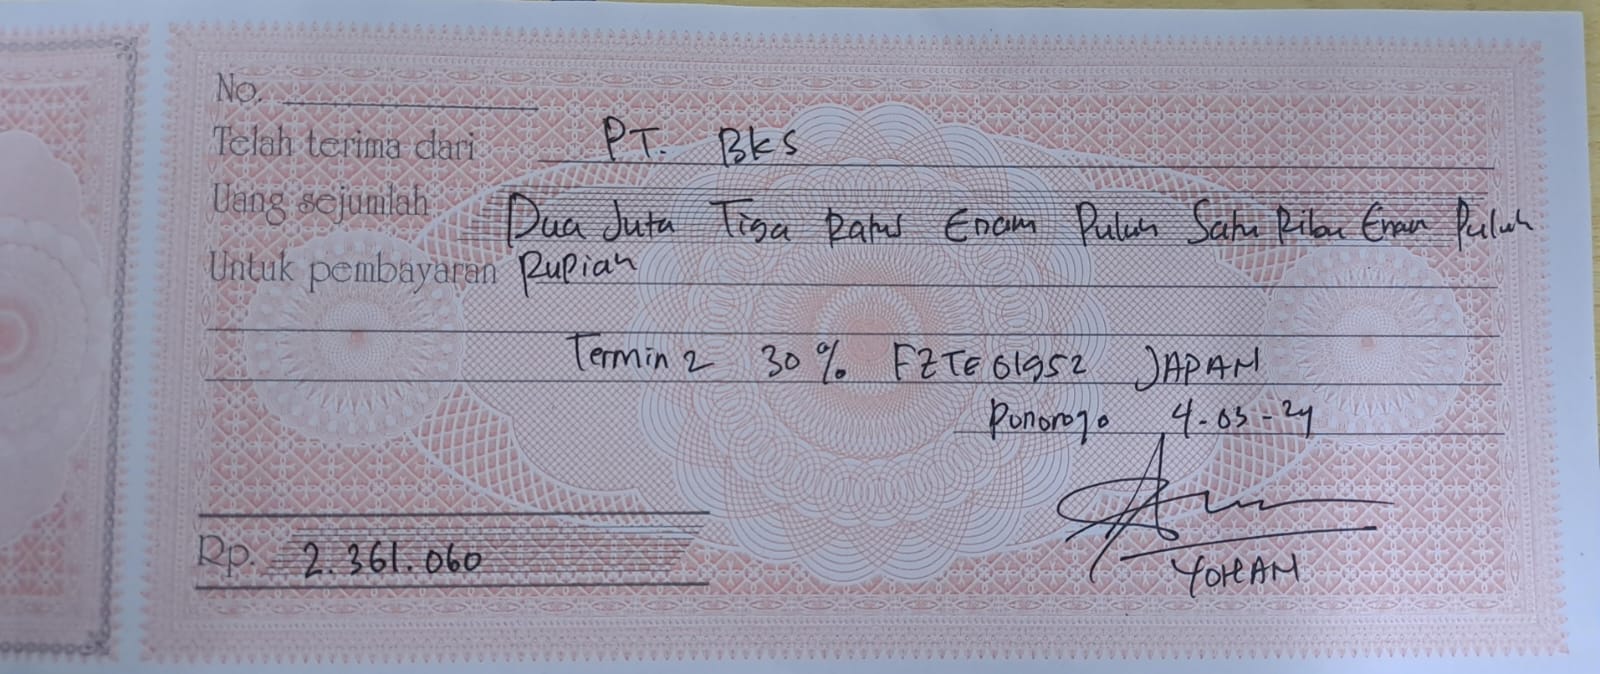 No.
Telah terima dari PT. BKS
Uang sejumlah Dua Juta Tiga Ratus Enam Puluh Satu Ribu Enam Puluh
Untuk pembayaran Rupiah
Termin 2 30% FZTE61952 JAPAN
Ponorogo 4-03-24
Rp. 2.361.060
YOHAN